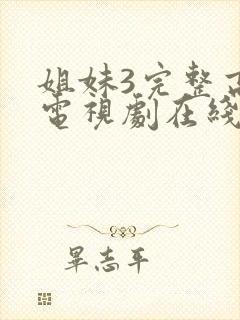 姐妹3完整
電視劇在綫
畢志平